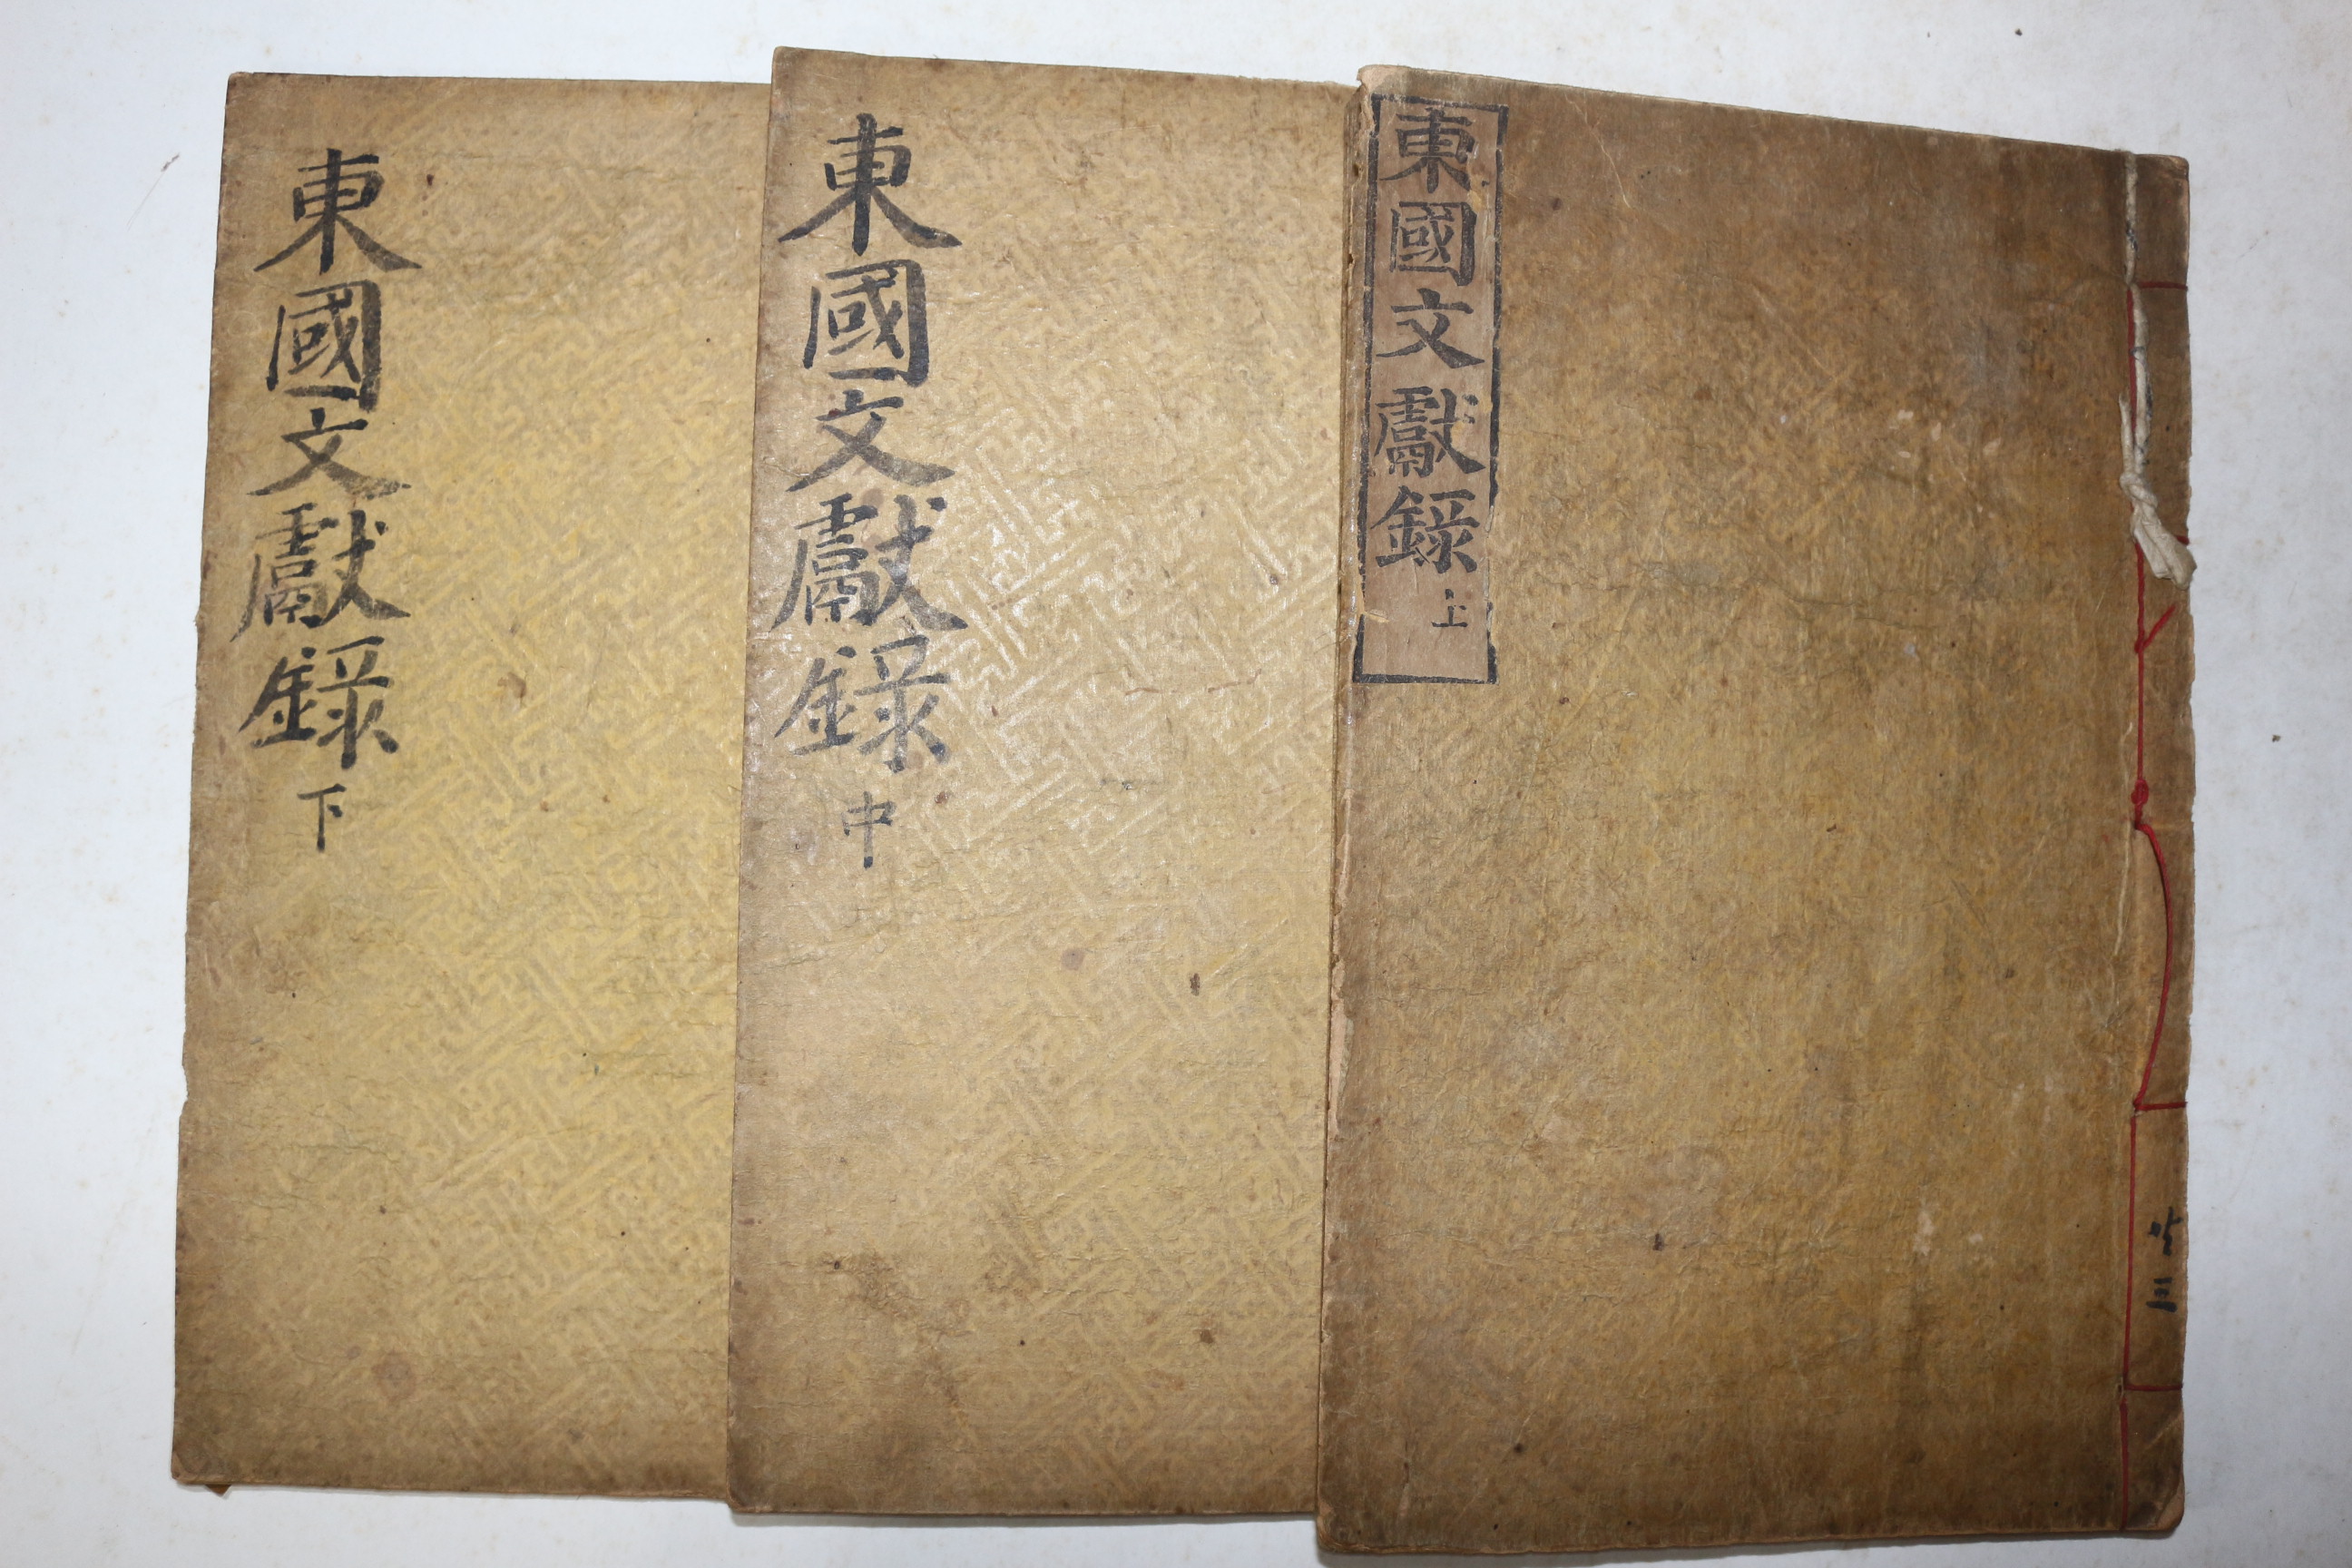 東國文獻錄 上
東國文獻錄 中
東國文獻錄 下
共三